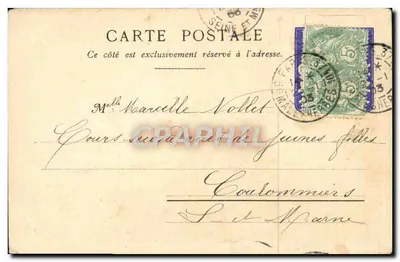 CARTE POSTALE
Ce côté est exclusivement réservé à l'adresse.
SEINE ET M
Melle Marcelle Nollet
Cours secondaire de jeunes filles
Coulommiers
S. et Marne